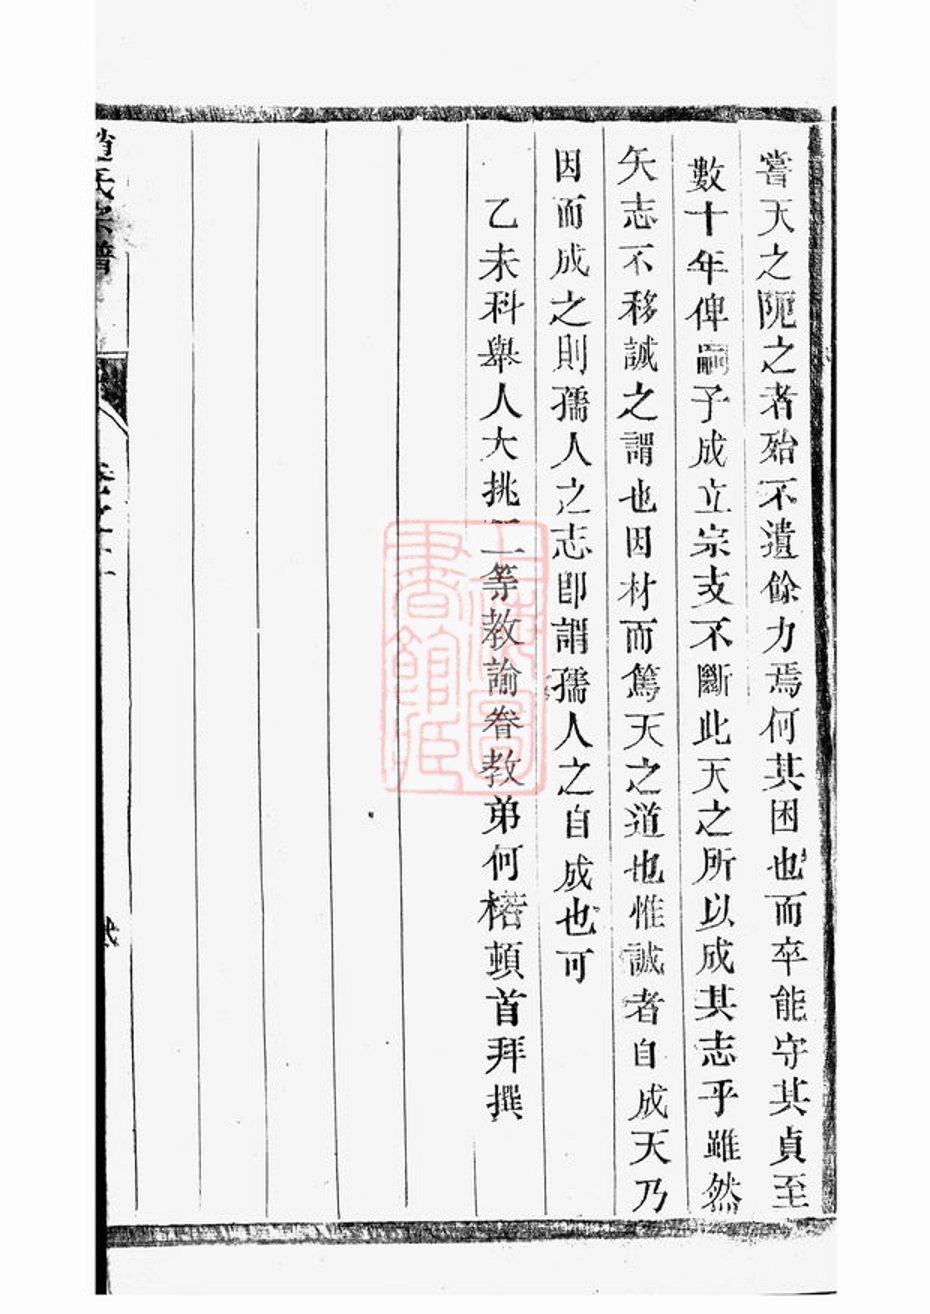 嘗天之阨之者殆不遺餘力焉何其困也而卒能守其貞至
數十年俾嗣子成立宗支不斷此天之所以成其志乎雖然
矢志不移誠之謂也因材而篤天之道也惟誠者自成天乃
因而成之則孺人之志即謂孺人之自成也可
乙未科舉人大挑二等教諭眷教弟何楉頓首拜撰
趙氏宗譜
卷之